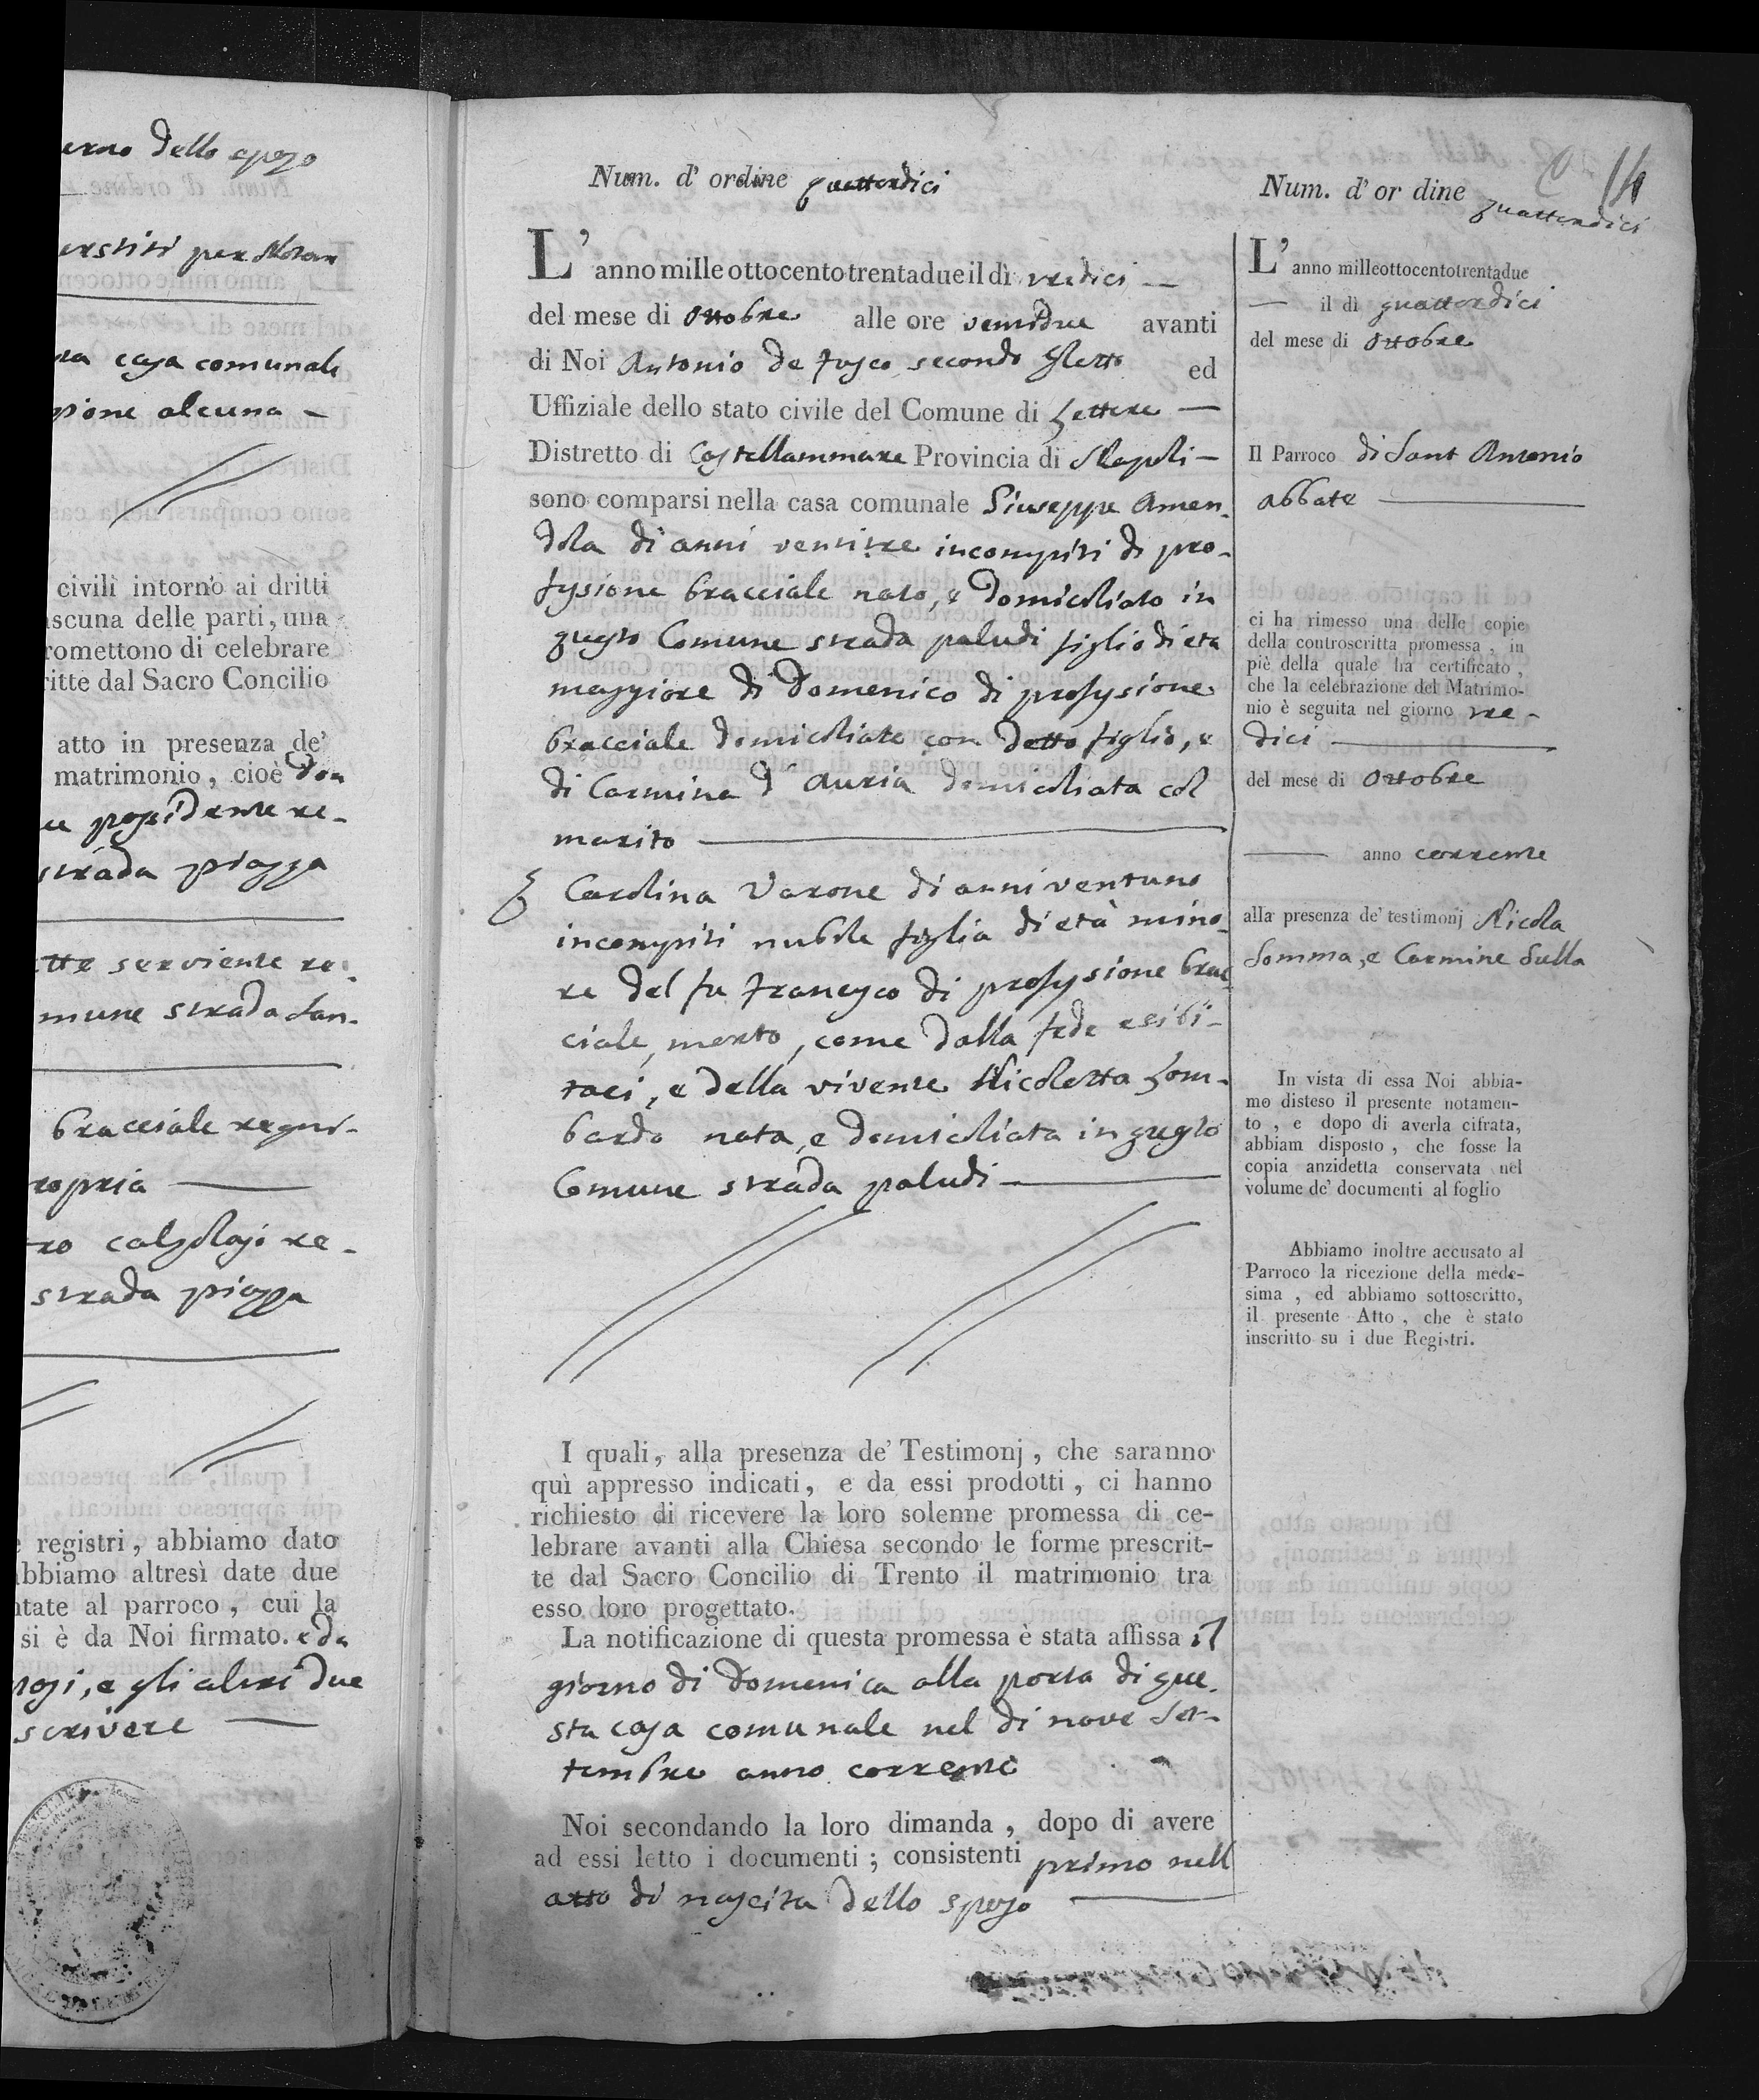 erno dello sposo
ersliti per Notar
na casa comunale
pione alcuna —
civili intorno ai dritti
ascuna delle parti, una
romettono di celebrare
ritte dal Sacro Concilio
atto in presenza de'
matrimonio, cioè don
possidente re-
strada piazza
serviente re-
mune strada San-
bracciale regni-
ropria
ro calzolajo re-
strada piazza
e registri, abbiamo dato
abbiamo altresì date due
ntate al parroco, cui la
si è da Noi firmato. e da
e gli altri due
scrivere
Num. d' ordine quattordici
L' anno mille ottocento trentadue il dì tredici —
del mese di Ottobre alle ore ventidue avanti
di Noi Antonio de Fusco secondo Eletto ed
Uffiziale dello stato civile del Comune di Lettere —
Distretto di Castellammare Provincia di Napoli —
sono comparsi nella casa comunale Giuseppe Amen-
dola di anni ventitre incompiti di pro-
fessione bracciale nato, e domiciliato in
questo Comune strada paludi figlio di età
maggiore di Domenico di professione
bracciale domiciliato con detto figlio, e
di Carmina d' Auria domiciliata col
marito
E Carolina Varone di anni ventuno
incompiti nubile figlia di età mino-
re del fu Francesco di professione brac-
ciale, morto, come dalla fede esibi-
taci, e della vivente Nicoletta Lom-
bardo nata, e domiciliata in questo
Comune strada paludi
I quali, alla presenza de' Testimonj, che saranno
quì appresso indicati, e da essi prodotti, ci hanno
richiesto di ricevere la loro solenne promessa di ce-
lebrare avanti alla Chiesa secondo le forme prescrit-
te dal Sacro Concilio di Trento il matrimonio tra
esso loro progettato.
La notificazione di questa promessa è stata affissa il
giorno di Domenica alla porta di que-
sta casa comunale nel dì nove Set-
tembre anno corrente
Noi secondando la loro dimanda, dopo di avere
ad essi letto i documenti; consistenti primo nell
atto di nascita dello sposo
14
Num. d' or dine quattordici
L' anno milleottocentotrentadue
— il dì quattordici
del mese di Ottobre
Il Parroco di Sant Antonio
abbate
ci ha rimesso una delle copie
della controscritta promessa, in
piè della quale ha certificato,
che la celebrazione del Matrimo-
nio è seguita nel giorno tre-
dici
del mese di Ottobre
anno corrente
alla presenza de' testimonj Nicola
Somma, e Carmine Sulla
In vista di essa Noi abbia-
mo disteso il presente notamen-
to, e dopo di averla cifrata,
abbiam disposto, che fosse la
copia anzidetta conservata nel
volume de' documenti al foglio
Abbiamo inoltre accusato al
Parroco la ricezione della mede-
sima, ed abbiamo sottoscritto,
il presente Atto, che è stato
inscritto su i due Registri.